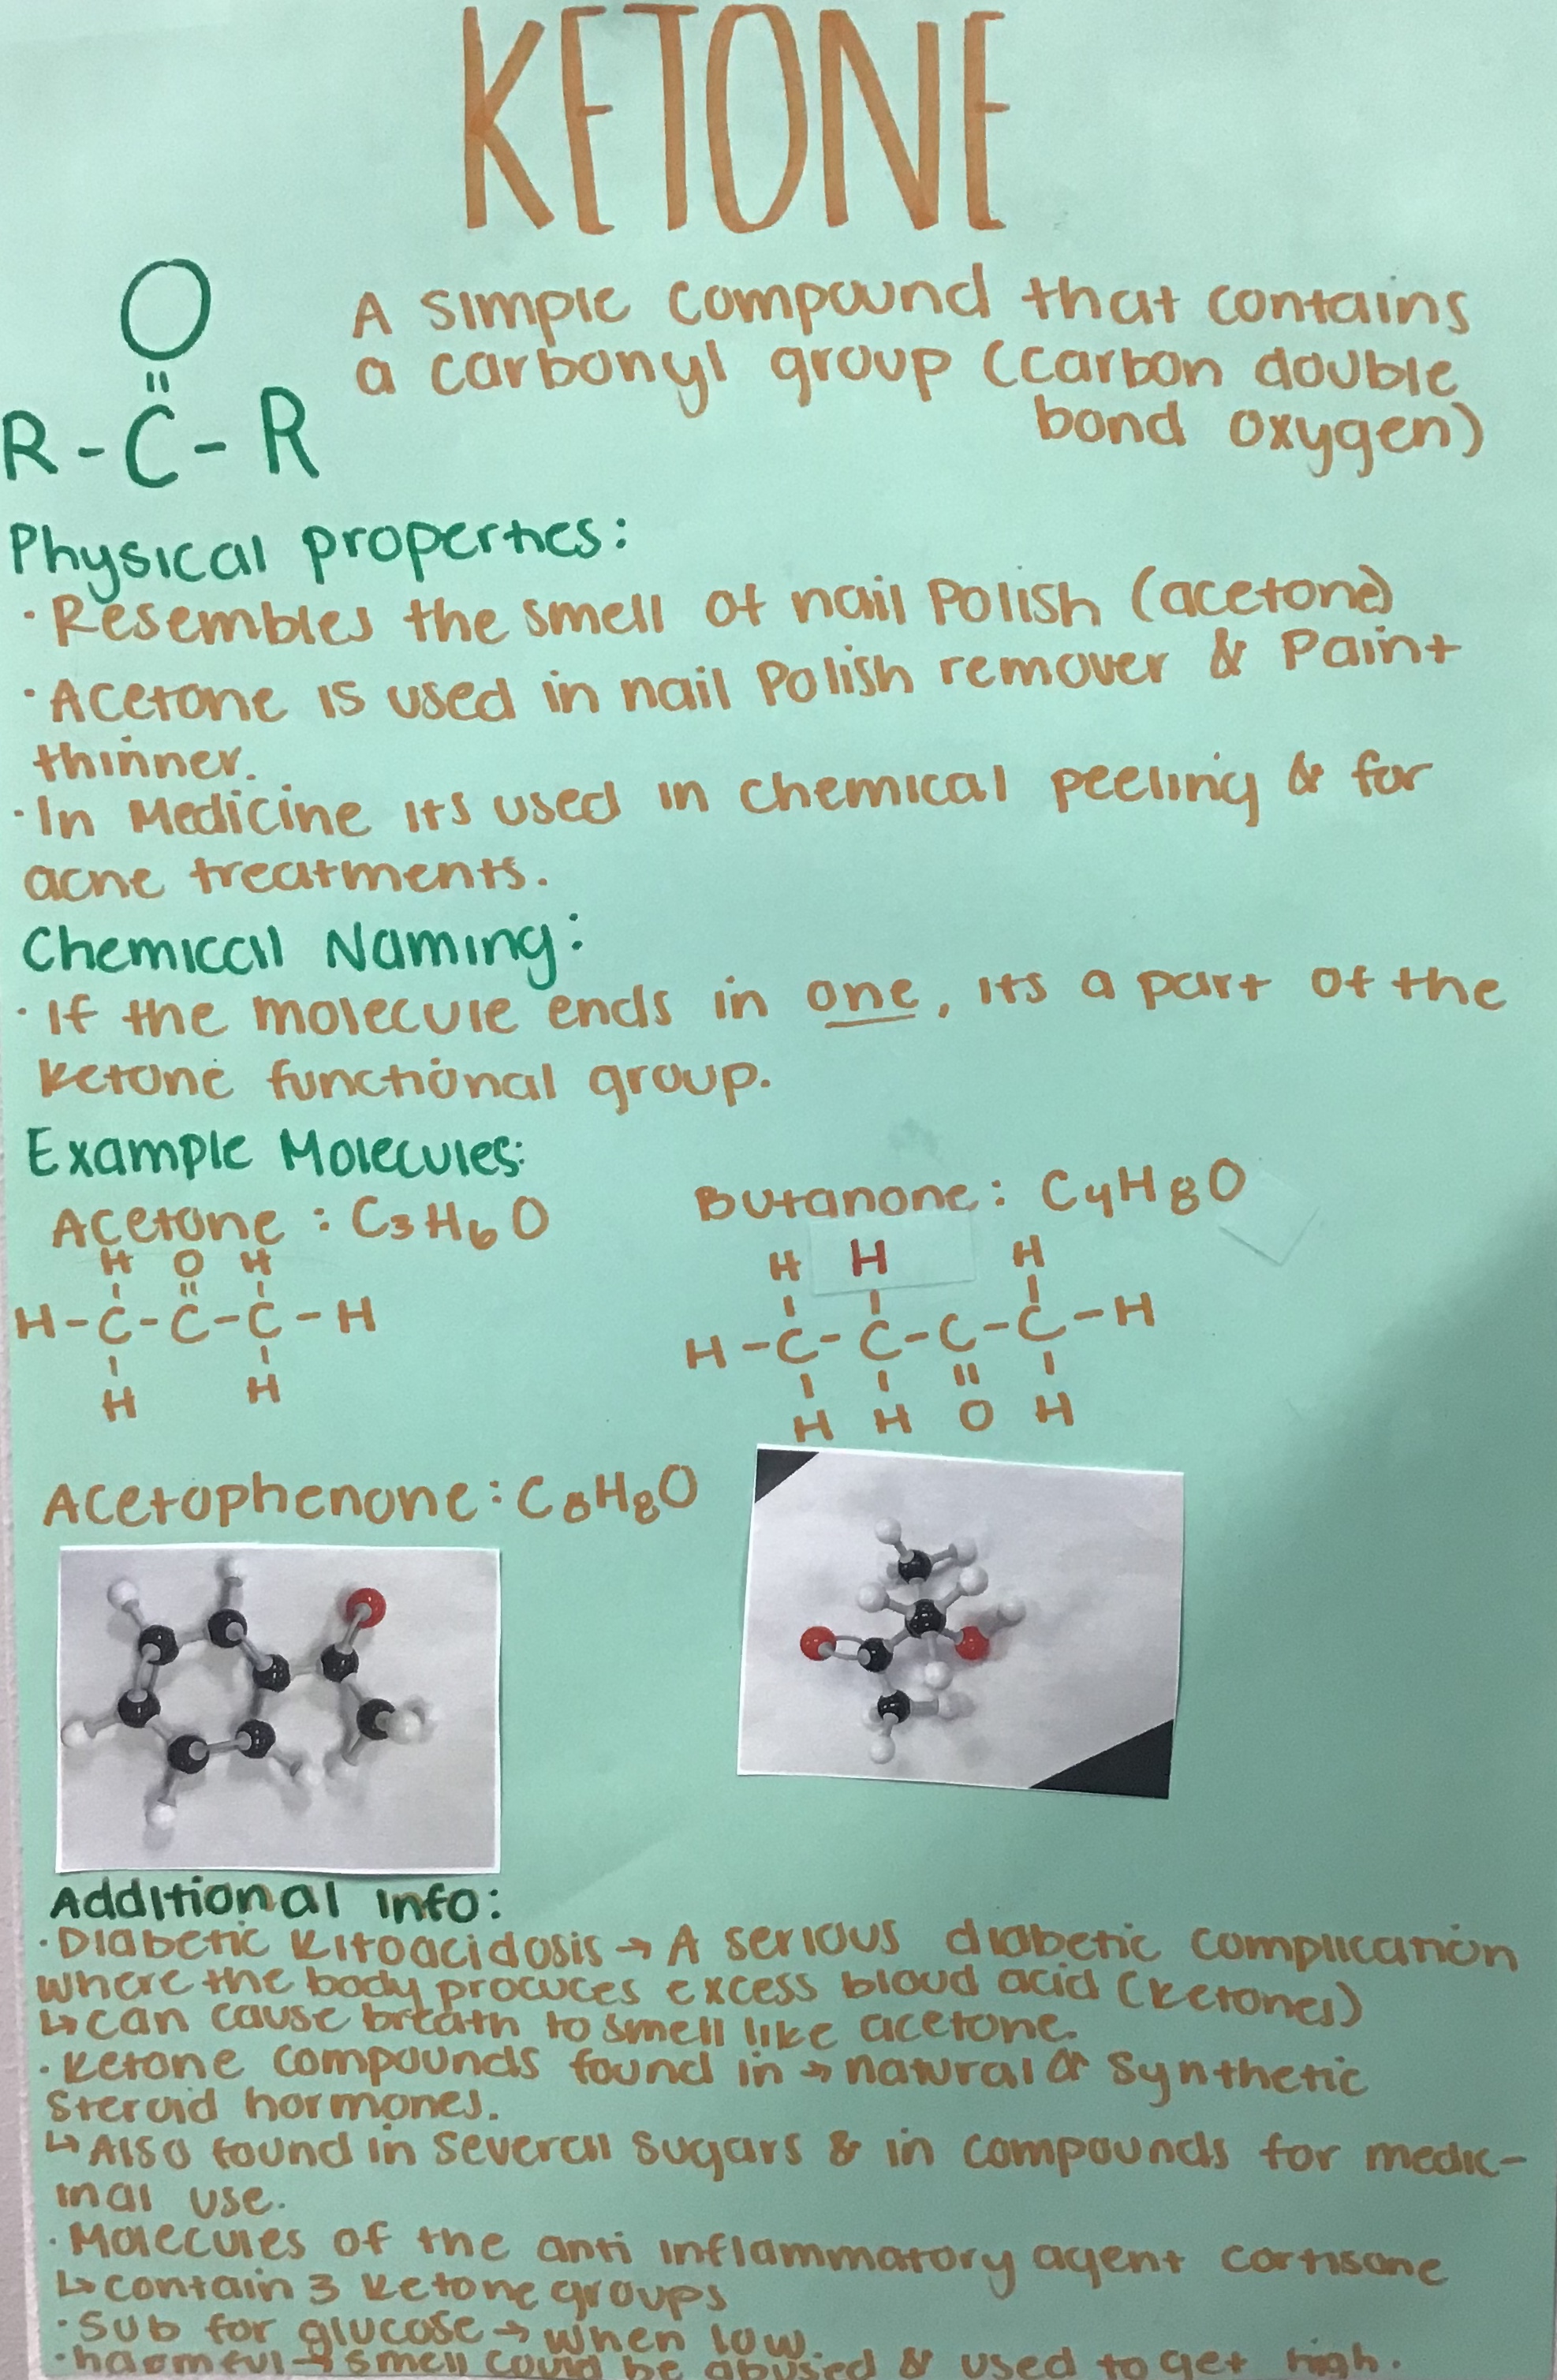 KETONE
O
=
R-C-R
A simple compound that contains
a carbonyl group (carbon double
bond oxygen)
Physical properties:
·Resembles the smell of nail Polish (acetone)
·Acetone is used in nail Polish remover & Paint
thinner.
·In Medicine its used in chemical peeling & for
acne treatments.
Chemical Naming:
·If the molecule ends in one, its a part of the
Ketone functional group.
Example Molecules:
Acetone : C3H6O
H O H
H-C-C-C-H
H H
Butanone: C4H8O
H H H
H-C-C-C-C-H
H H O H
Acetophenone: C8H8O
Additional info:
·Diabetic Kitoacidosis → A serious diabetic complication
where the body procuces excess blood acid (ketones)
↳ can cause breath to smell like acetone.
·Ketone compounds found in → natural & Synthetic
Steroid hormones.
↳ Also found in several sugars & in compounds for medic-
inal use.
·Molecules of the anti inflammatory agent cortisone
↳ contain 3 Ketone groups
·Sub for glucose → when low.
·harmful → smell could be abused & used to get high.